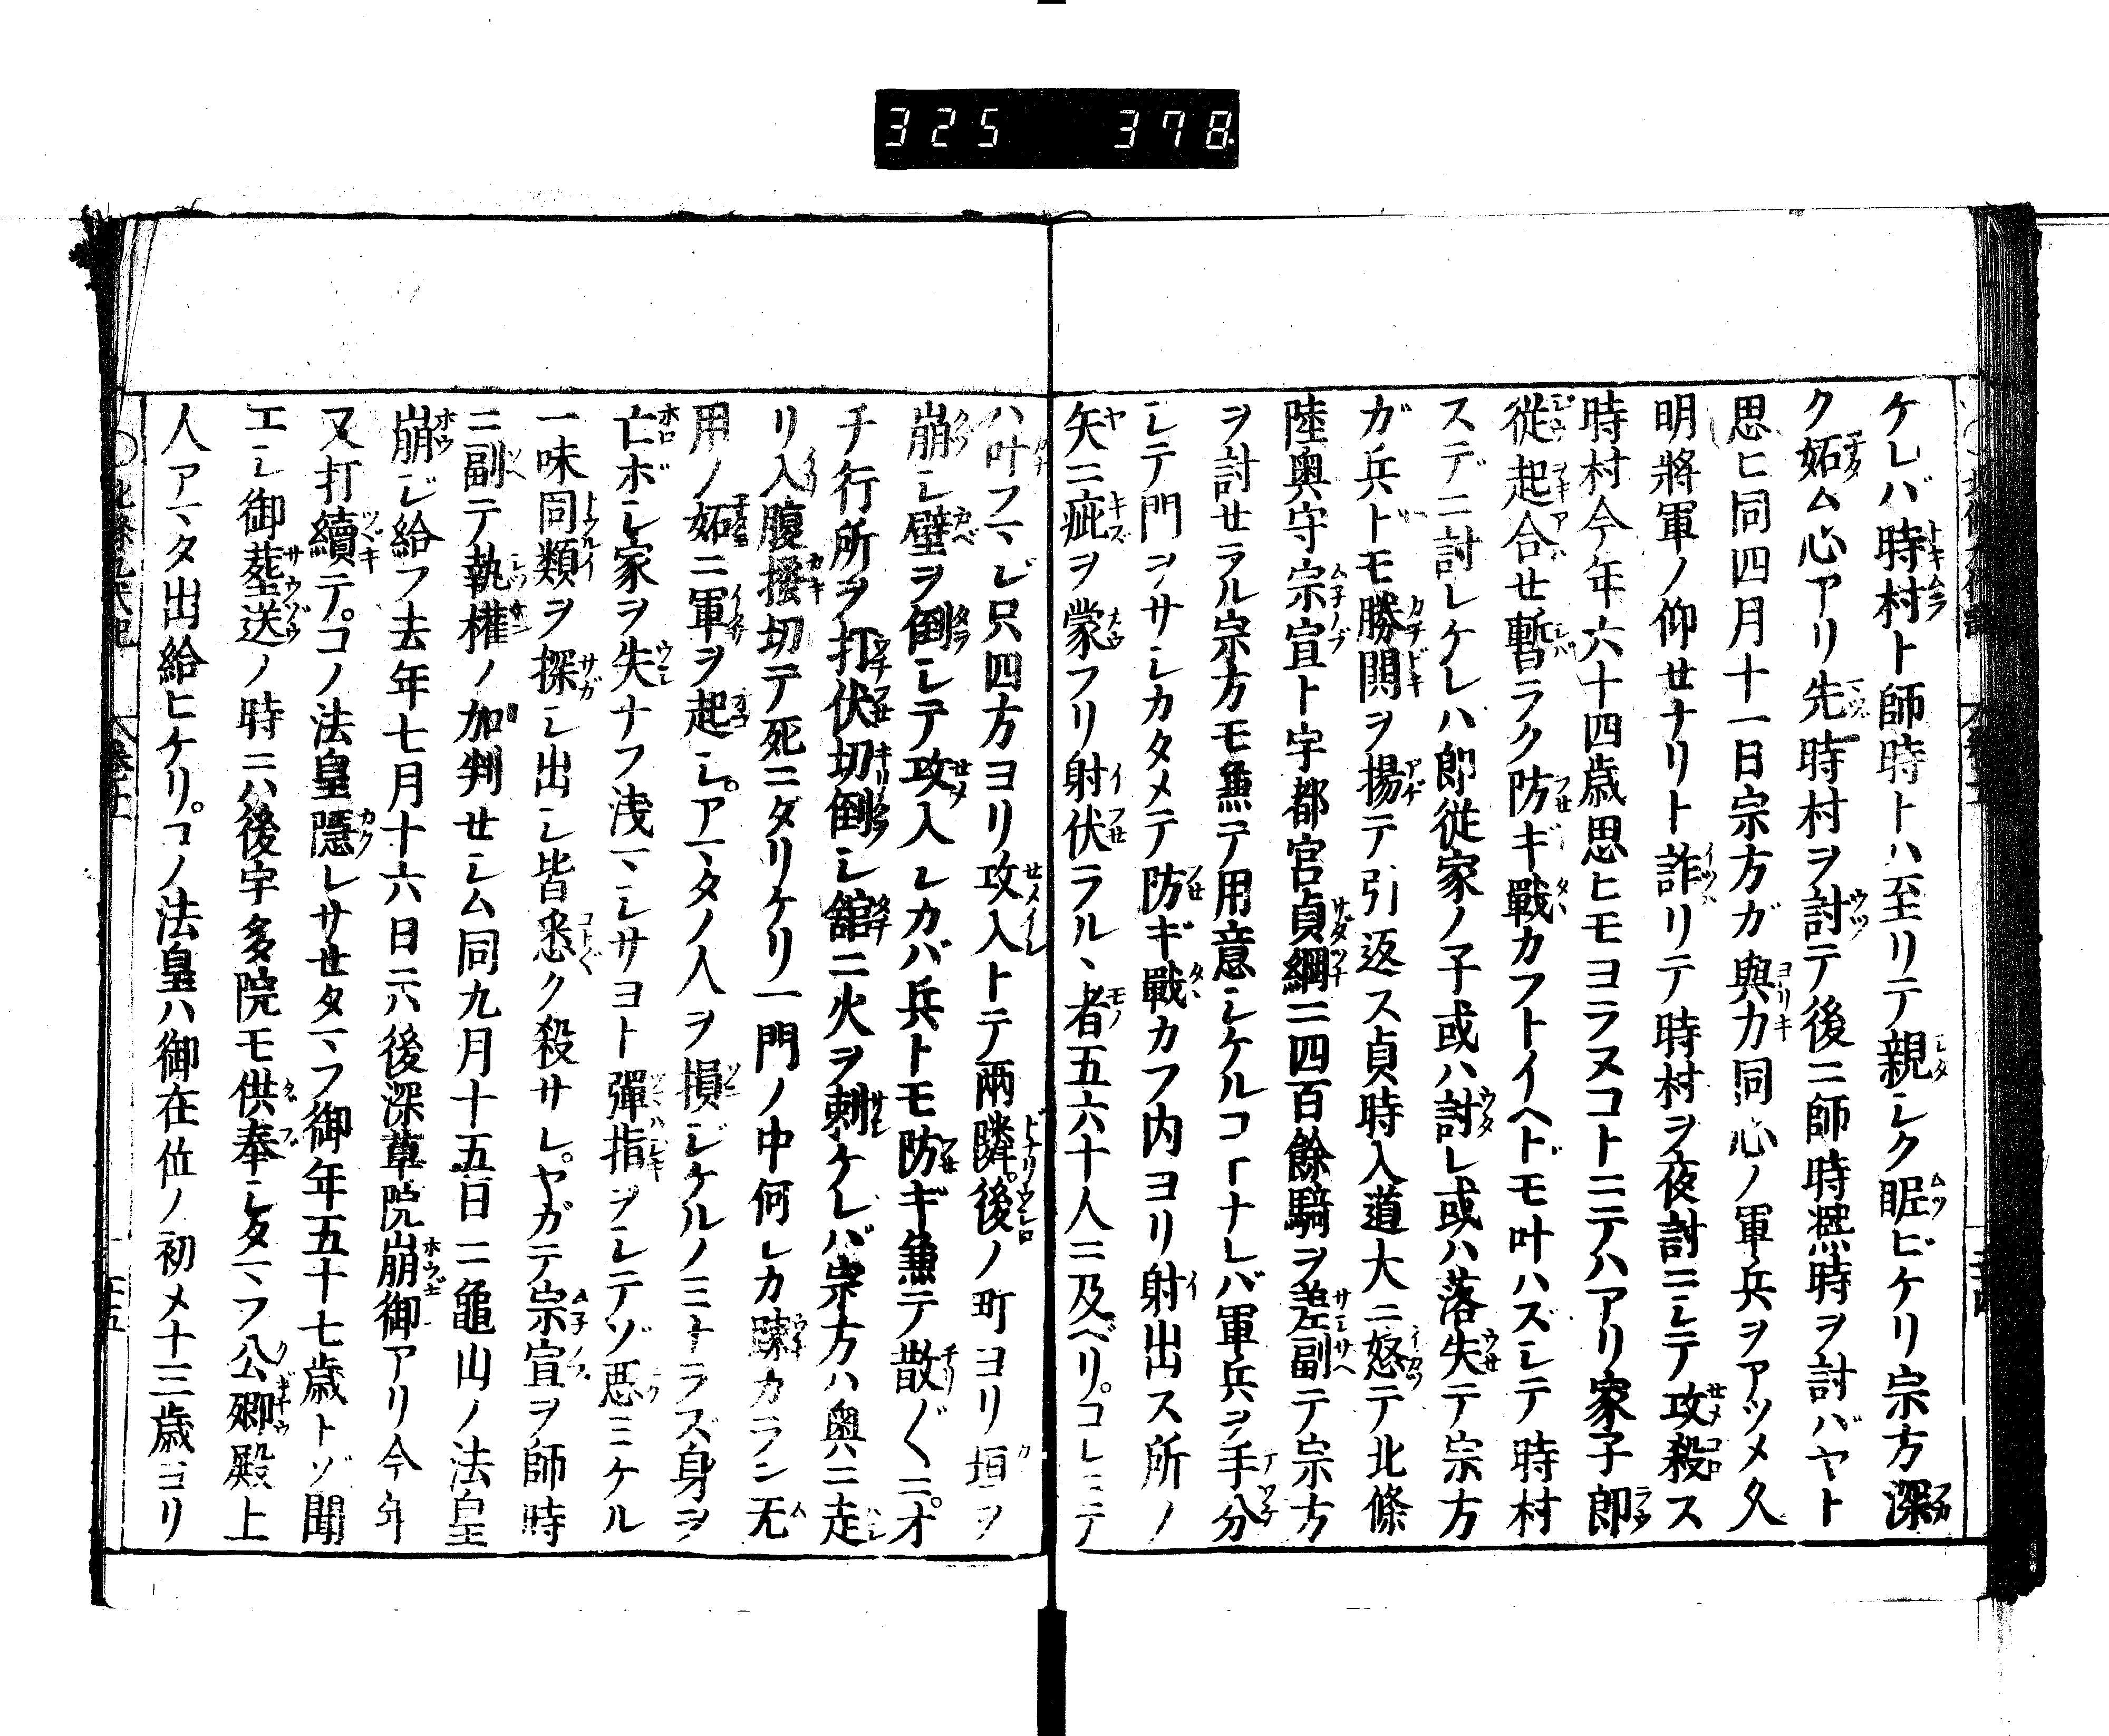 325 378
ケレバ時村ト師時トハ至リテ親シク昵ビケリ宗方深
ク妬ム心アリ先時村ヲ討テ後ニ師時凞時ヲ討バヤト
思ヒ同四月十一日宗方ガ與力同心ノ軍兵ヲアツメ久
明將軍ノ仰セナリト詐リテ時村ヲ夜討ニシテ攻殺ス
時村今年六十四歳思ヒモヨラヌコトニテハアリ家子郎
從起合セ暫ラク防ギ戰カフトイヘドモ叶ハズシテ時村
スデニ討レケレハ郎従家ノ子或ハ討レ或ハ落失テ宗方
ガ兵ドモ勝鬨ヲ揚テ引返ス貞時入道大ニ怒テ北條
陸奥守宗宣ト宇都宮貞綱ニ四百餘騎ヲ差副テ宗方
ヲ討セラル宗方モ兼テ用意シケルコトナレバ軍兵ヲ手分
シテ門ヲサシカタメテ防ギ戰カフ内ヨリ射出ス所ノ
矢ニ疵ヲ蒙フリ射伏ラルヽ者五六十人ニ及ベリ。コレニテ
ハ叶フマジ只四方ヨリ攻入トテ兩隣。後ノ町ヨリ垣ヲ
崩シ壁ヲ倒シテ攻入シカバ兵トモ防ギ兼テ散〲ニ。オ
チ行所ヲ打伏切倒シ舘ニ火ヲ刺ケレバ宗方ハ奥ニ走
リ入腹掻切テ死ニタリケリ一門ノ中何レカ踈カラン无
用ノ妬ニ軍ヲ起シ。アマタノ人ヲ損ジケルノミナラズ身ヲ
亡ボシ家ヲ失ナフ浅マシサヨト彈指ヲシテゾ惡ミケル
一味同類ヲ探シ出シ皆悉ク殺サレ。ヤガテ宗宣ヲ師時
ニ副テ執權ノ加判セシム同九月十五日ニ龜山ノ法皇
崩ジ給フ去年七月十六日ニハ後深草院崩御アリ今年
又打續テ。コノ法皇隱レサセタマフ御年五十七歳トゾ聞
エシ御葬送ノ時ニハ後宇多院モ供奉シタマフ公卿殿上
人アマタ出給ヒケリ。コノ法皇ハ御在位ノ初メ十三歳ヨリ